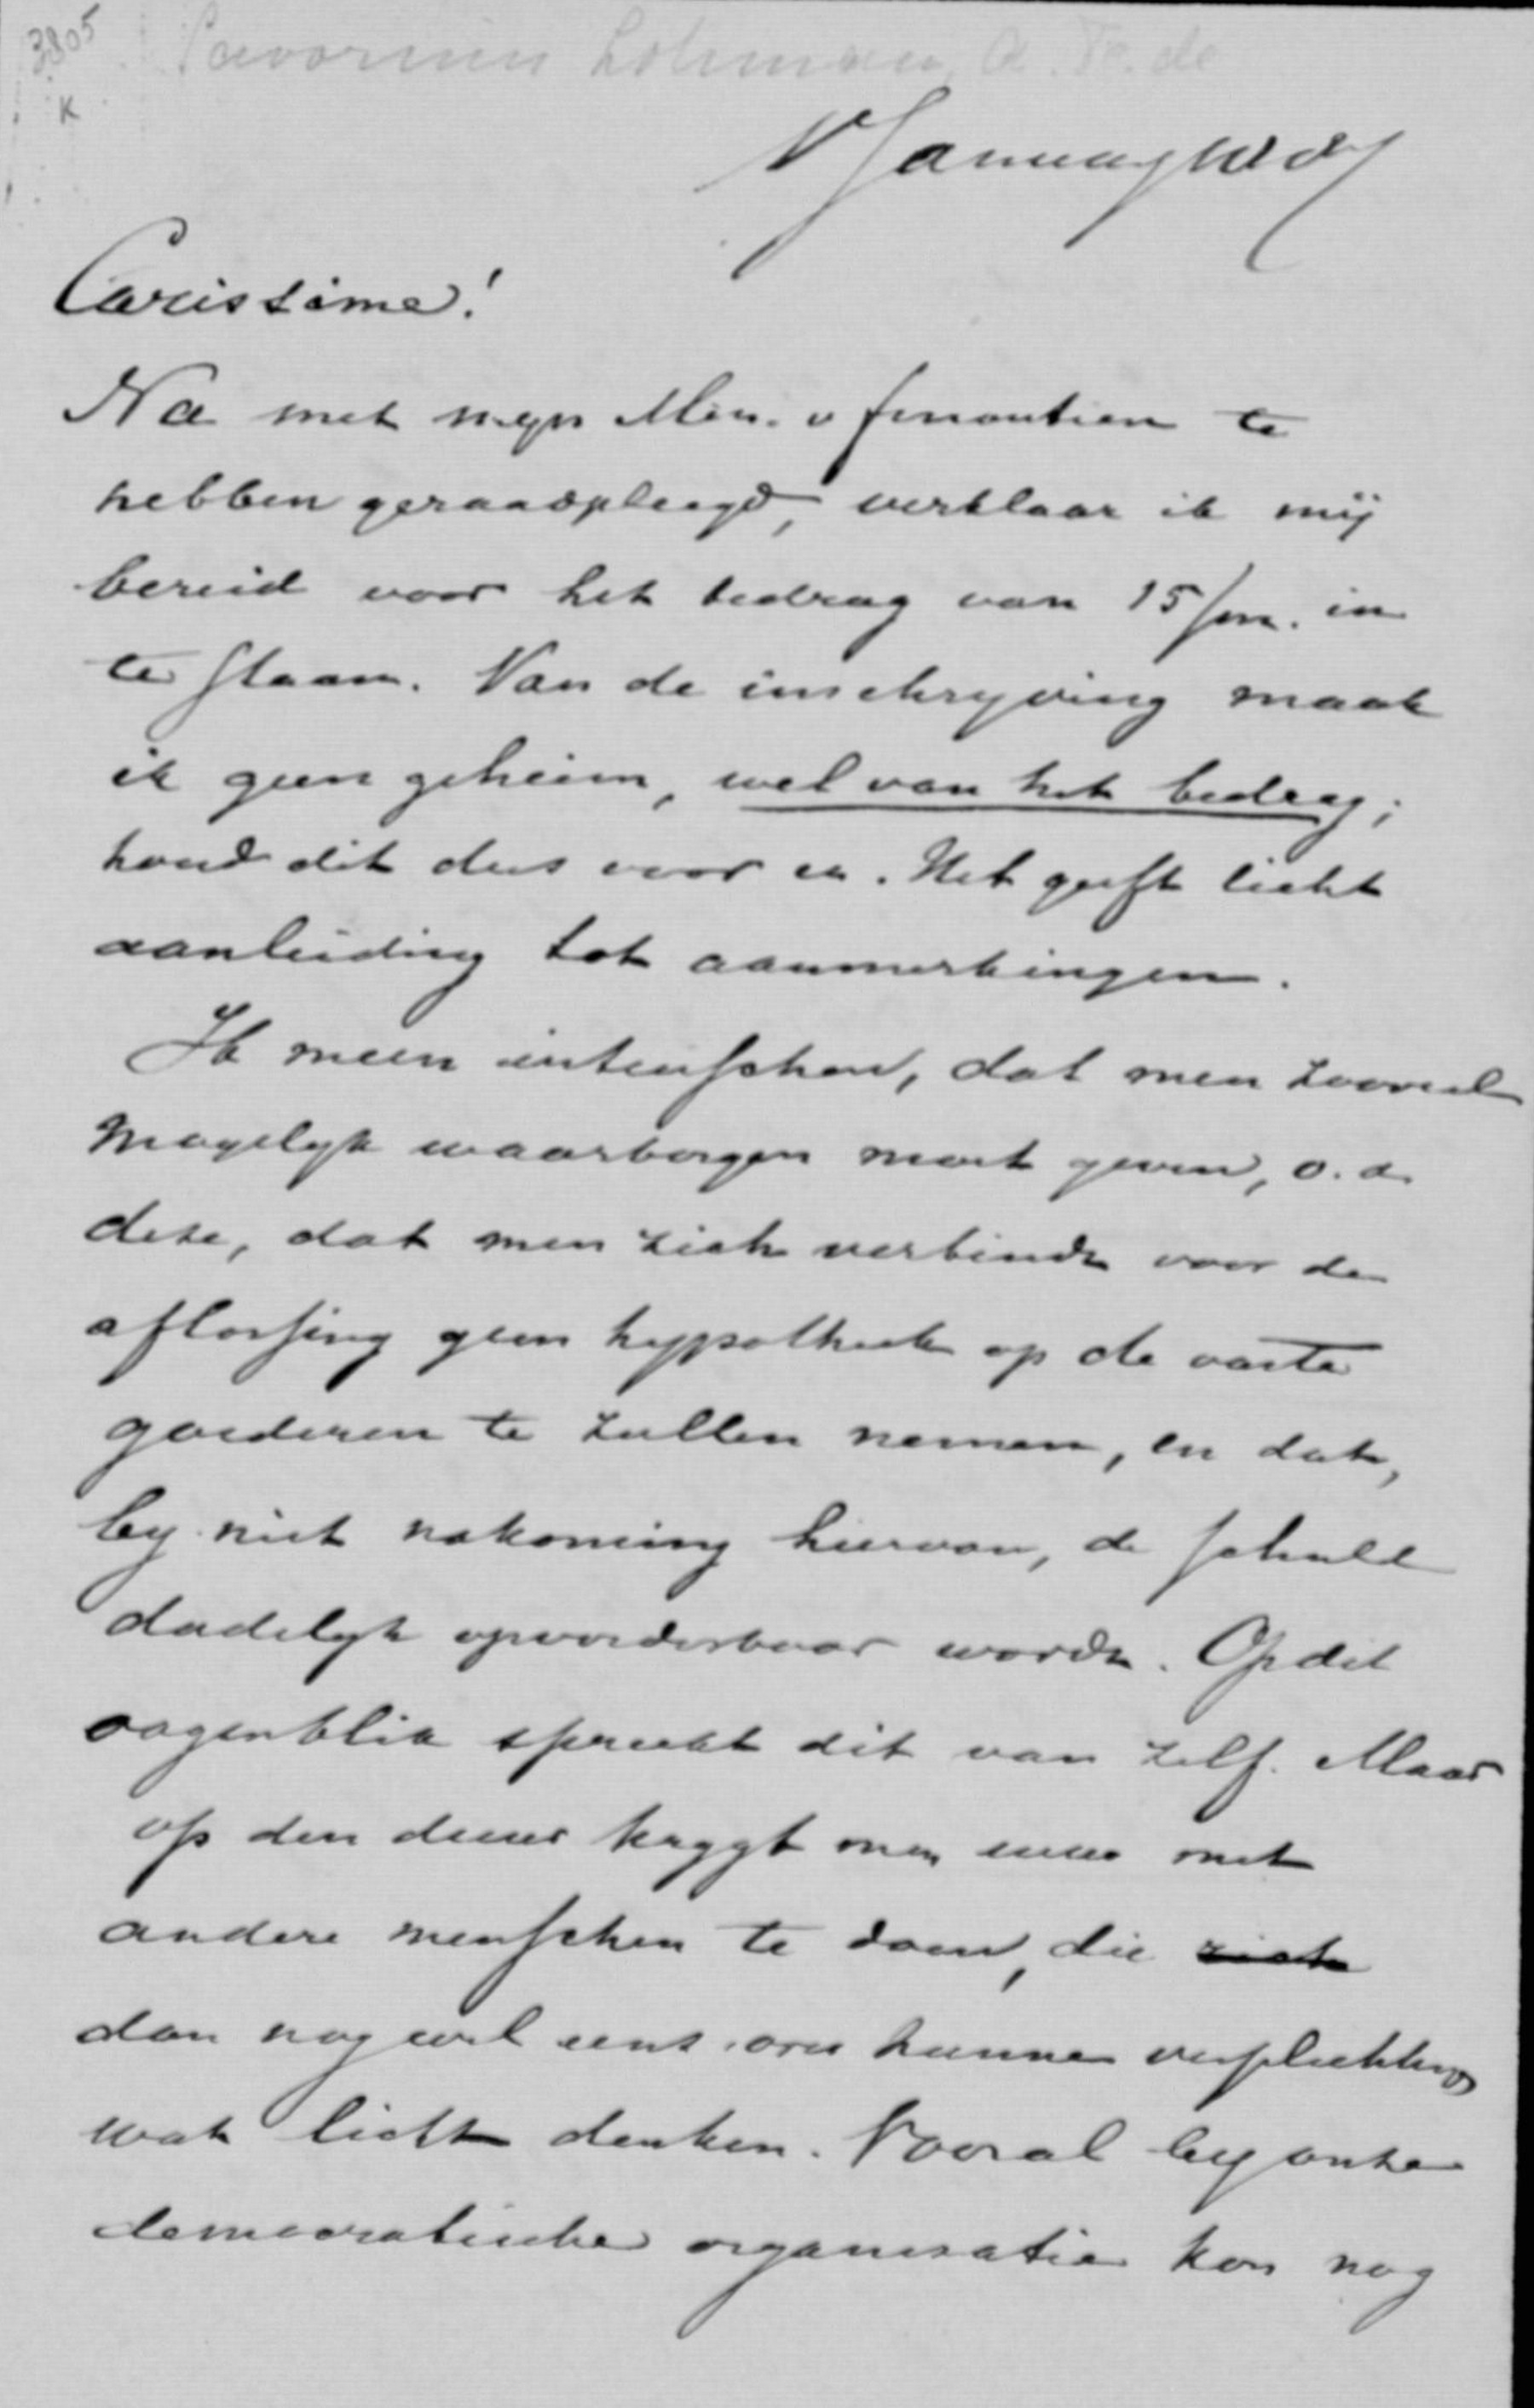 3805
K
Savornin Lohman, A. F. de
Carissime!
Na met mijn Min. v financien te
hebben geraadpleegd, verklaar ik mij
bereid voor het bedrag van 15/m. in
te staan. Van de inschrijving maak
ik geen geheim, wel van het bedrag;
houd dit dus voor u. Het geeft licht
aanleiding tot aanmerkingen.
Ik meen intusschen, dat men zooveel
mogelijk waarborgen moet geven, o.a.
deze, dat men zich verbinde voor de
aflossing geen hypotheek op de vaste
goederen te zullen nemen, en dat,
bij niet nakoming hiervan, de schuld
dadelijk opvorderbaar worde. Op dit
oogenblik spreekt dit van zelf. Maar
op den duur krijgt men weer met
andere menschen te doen, die zich
dan nog wel eens over hunne verplichting
wat licht denken. Vooral bij onze
democratische organisatie kon nog